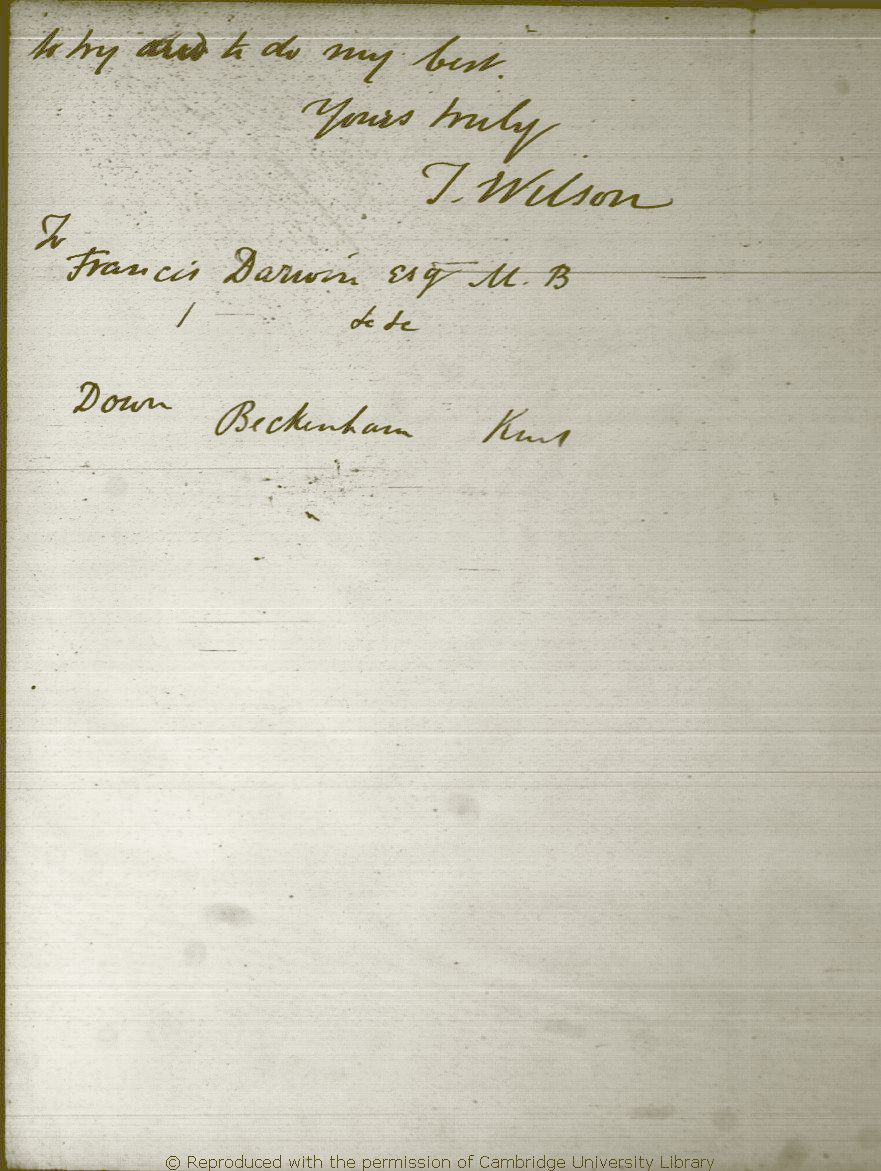 to try and to do my best.
Yours truly
T. Wilson
To
Francis Darwin Esq M. B
&c &c
Down
Beckenham Kent
© Reproduced with the permission of Cambridge University Library